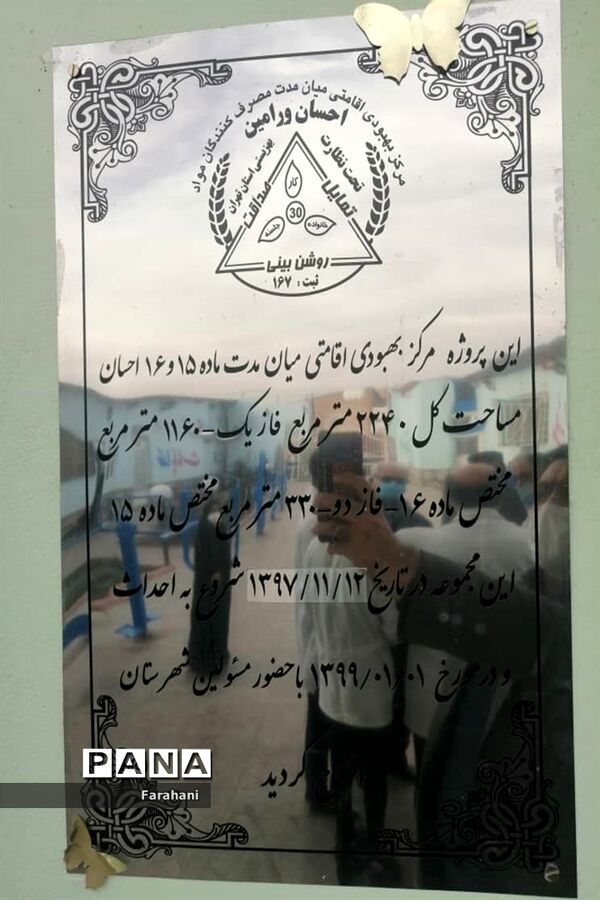 مرکز بهبودی اقامتی میان مدت مصرف کنندگان مواد
احسان ورامین
تحت نظارت
بهزیستی استان تهران
صداقت
تمایل
کار
30
جلسه
خانواده
روشن بینی
ثبت: ۱۶۷
این پروژه مرکز بهبودی اقامتی میان مدت ماده ۱۵ و ۱۶ احسان
مساحت کل ۲۲۴۰ متر مربع فاز یک-۱۱۶۰ متر مربع
مختص ماده ۱۶-فاز دو-۳۳۰ متر مربع مختص ماده ۱۵
این مجموعه در تاریخ ۱۳۹۷/۱۱/۱۲ شروع به احداث
و در مورخ ۱۳۹۹/۰۱/۰۱ با حضور مسئولین شهرستان
گردید
PANA
Farahani